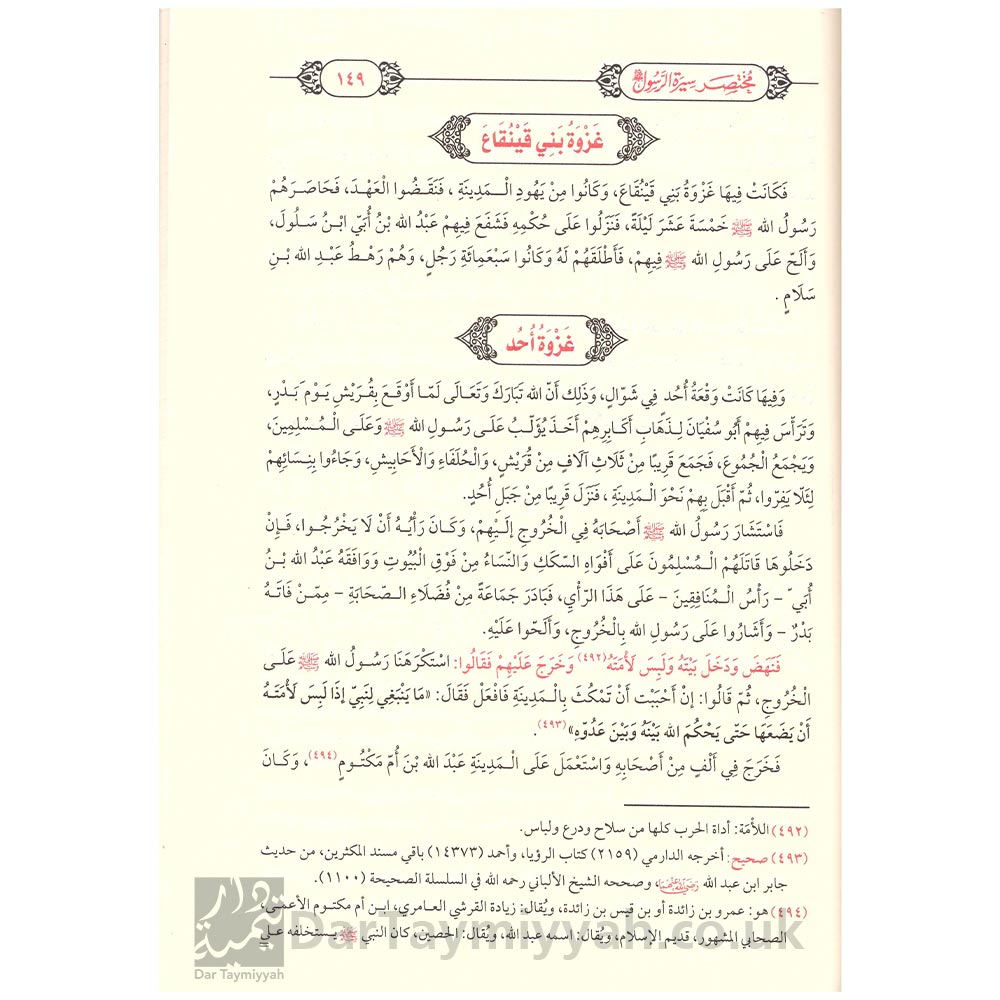 مُخْتَصَر سِيرَةِ الرَّسُولِ ﷺ
١٤٩
غَزْوَةُ بَنِي قَيْنُقَاعَ
فَكَانَتْ فِيهَا غَزْوَةُ بَنِي قَيْنُقَاعَ، وَكَانُوا مِنْ يَهُودِ الْـمَدِينَةِ ، فَنَقَضُوا الْعَهْدَ، فَحَاصَرَهُمْ
رَسُولُ الله ﷺ خَمْسَةَ عَشَرَ لَيْلَةً، فَنَزَلُوا عَلَى حُكْمِهِ فَشَفَعَ فِيهِمْ عَبْدُ الله بْنُ أُبَيِّ ابْنُ سَلُولَ،
وَأَلَحّ عَلَى رَسُولِ الله ﷺ فِيهِمْ، فَأَطْلَقَهُمْ لَهُ وَكَانُوا سَبْعَمِائَةِ رَجُلٍ، وَهُمْ رَهْطُ عَبْدِ الله بْنِ
سَلَامٍ .
غَزْوَةُ أُحُد
وَفِيهَا كَانَتْ وَقْعَةُ أُحُد فِي شَوّالٍ، وَذَلِك أَنّ الله تَبَارَكَ وَتَعَالَى لَمّا أَوْقَعَ بِقُرَيْشٍ يَوْمَ بَدْرٍ،
وَتَرَأّسَ فِيهِمْ أَبُو سُفْيَانَ لِذَهَابِ أَكَابِرِهِمْ أَخَذَ يُؤَلّبُ عَلَى رَسُولِ الله ﷺ وَعَلَى الْمُسْلِمِينَ،
وَيَجْمَعُ الْجُمُوعَ، فَجَمَعَ قَرِيبًا مِنْ ثَلَاثِ آلَافٍ مِنْ قُرَيْشٍ، وَالْحُلَفَاءِ وَالْأَحَابِيشِ، وَجَاءُوا بِنِسَائِهِمْ
لِئَلّا يَفِرّوا، ثُمّ أَقْبَلَ بِهِمْ نَحْوَ الْـمَدِينَةِ ، فَنَزَلَ قَرِيبًا مِنْ جَبَلِ أُحُدٍ.
فَاسْتَشَارَ رَسُولُ الله ﷺ أَصْحَابَهُ فِي الْخُرُوجِ إلَيْهِمْ، وَكَانَ رَأْيُهُ أَنْ لَا يَخْرُجُوا، فَإِنْ
دَخَلُوهَا قَاتَلَهُمْ الْـمُسْلِمُونَ عَلَى أَفْوَاهِ السّكَكِ وَالنّسَاءُ مِنْ فَوْقِ الْبُيُوتِ وَوَافَقَهُ عَبْدُ الله بْنُ
أُبَيّ – رَأْسُ الْـمُنَافِقِينَ – عَلَى هَذَا الرّأْيِ، فَبَادَرَ جَمَاعَةٌ مِنْ فُضَلَاءِ الصّحَابَةِ – مِمّنْ فَاتَهُ
بَدْرٌ – وَأَشَارُوا عَلَى رَسُولِ الله بِالْخُرُوجِ، وَأَلَحّوا عَلَيْهِ.
فَنَهَضَ وَدَخَلَ بَيْتَهُ وَلَبِسَ لَأْمَتَهُ(٤٩٢) وَخَرَجَ عَلَيْهِمْ فَقَالُوا: اسْتَكْرَهْنَا رَسُولَ الله ﷺ عَلَى
الْخُرُوجِ، ثُمّ قَالُوا: إنْ أَحْبَبْت أَنْ تَمْكُثَ بِالْـمَدِينَةِ فَافْعَلْ فَقَالَ: «مَا يَنْبَغِي لِنَبِيّ إذَا لَبِسَ لَأْمَتَهُ
أَنْ يَضَعَهَا حَتّى يَحْكُمَ الله بَيْنَهُ وَبَيْنَ عَدُوّهِ»(٤٩٣).
فَخَرَجَ فِي أَلْفٍ مِنْ أَصْحَابِهِ وَاسْتَعْمَلَ عَلَى الْـمَدِينَةِ عَبْدَ الله بْنَ أُمّ مَكْتُومٍ(٤٩٤)، وَكَانَ
(٤٩٢) اللأْمَة: أداة الحرب كلها من سلاح ودرع ولباس.
(٤٩٣) صحيح: أخرجه الدارمي (٢١٥٩) كتاب الرؤيا، وأحمد (١٤٣٧٣) باقي مسند المكثرين، من حديث
جابر ابن عبد الله رَضِيَ اللهُ عَنْهُمَا، وصححه الشيخ الألباني رحمه الله في السلسلة الصحيحة (١١٠٠).
(٤٩٤) هو: عمرو بن زائدة أو بن قيس بن زائدة، ويُقال: زيادة القرشي العامري، ابن أم مكتوم الأعمى،
الصحابي المشهور، قديم الإسلام، ويُقال: اسمه عبد الله، ويُقال: الحصين، كان النبي ﷺ يستخلفه على
Dar Taymiyyah
DarTaymiyyah.co.uk